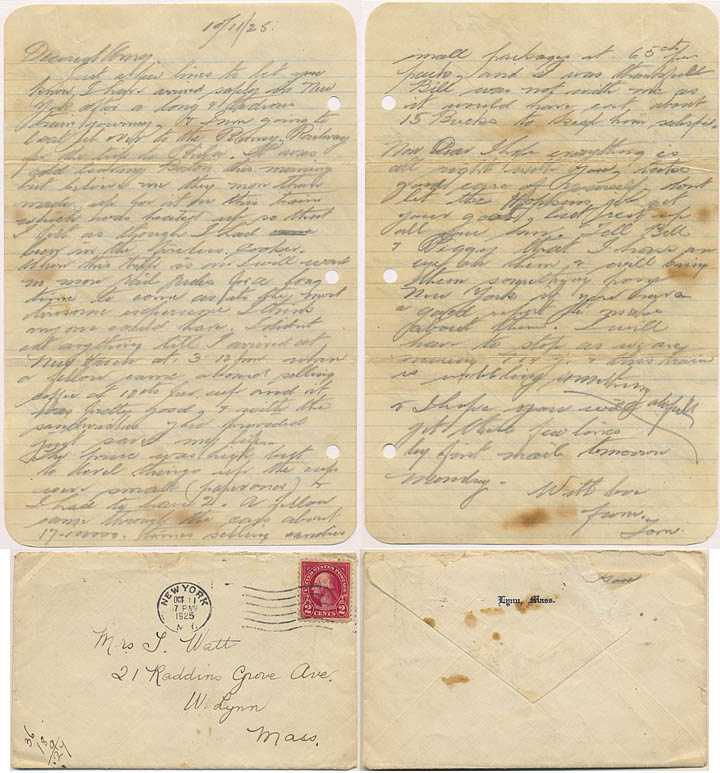 10/11/25.
Just a few lines to let you
know I have arrived safely in New
York after a long & tedious
train journey, & I am going to
get over to the Railway
for the trip to It was
cold leaving Boston this morning
but believe me they more than
made up for it on this train
which was heated up so that
I felt as though I had
been in the fireless cooker.
When this trip is over I will want
no more for a long
time to come as its the most
experience I think
any one could have. I didnt
eat anything till I arrived at
New Haven at 3-10 when
a fellow came aboard selling
coffee at 10cts per cup and it
was pretty good, & with the
sandwiches you provided
just saved my life.
The price was high but
to level things up the cups
were small (paper ones) &
I had to have 2. A fellow
came through the cars about
17 times selling candies
small packages at 65cts per
pack, and I was thankful
Bill was not with me as
it would have cost about
15 Bucks to keep him satisfied.
Now Dear I hope everything is
all right with you, take
good care of yourself, dont
let the get
your goat, but rest up
all you can. Tell Bill
& Peggy that I have an
eye on them & will bring
them something from
New York if you have
a good report to make
about them. I will
have to stop as we are
moving & this train
is wobbling something
awful
& I hope you will
get these few lines
by first mail tomorrow
Monday. With love
from
Tom.
NEW YORK
OCT 11
7 PM
1925
N.Y.
UNITED STATES POSTAGE
2 CENTS 2
Mrs T. Watt
21 Raddins Grove Ave.
W. Lynn
Mass.
36
13
Lynn, Mass.